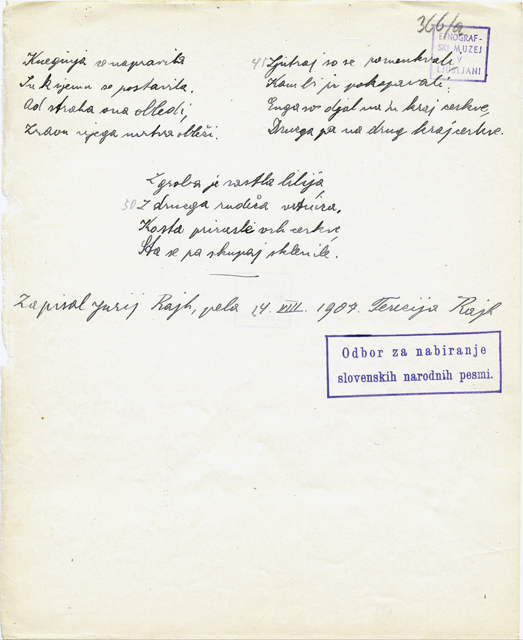 366/a
ETNOGRAF-
SKI MUZEJ
V
LJUBLJANI
Kneginja se napravila
In k njemu se postavila.
Od straha ona obledi,
Zraven njega mrtva obleži.
41 Ljutraj so se pomenkvali
Kam bi ju pokopavali:
Enga so djal na en kraj cerkve,
Druega pa na drug kraj cerkve.
Z groba je rastla lilija,
50 Z druega rudeča vrtnica,
Kosta prirastle vrh cerkve,
Sta se pa skupaj sklenile.
Zapisal Jurij Rajh, pela 14. VIII. 1907. Terecija Rajh
Odbor za nabiranje
slovenskih narodnih pesmi.